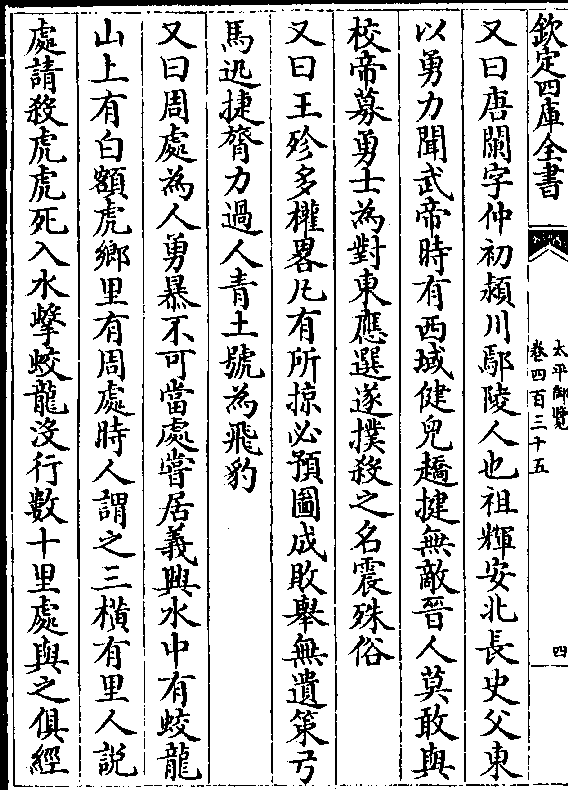 欽定四庫全書
太平御覽
卷四百三十五
四
又曰唐闡字仲初潁川鄢陵人也祖輝安北長史父東
以勇力聞武帝時有西域健兒趫揵無敵晉人莫敢與
校帝募勇士為對東應選遂撲殺之名震殊俗
又曰王彌多權畧凡有所掠必預圖成敗舉無遺策弓
馬迅捷膂力過人青土號為飛豹
又曰周處為人勇暴不可當處嘗居義興水中有蛟龍
山上有白額虎鄉里有周處時人謂之三橫有里人説
處請殺虎虎死入水擊蛟龍没行數十里處與之俱經